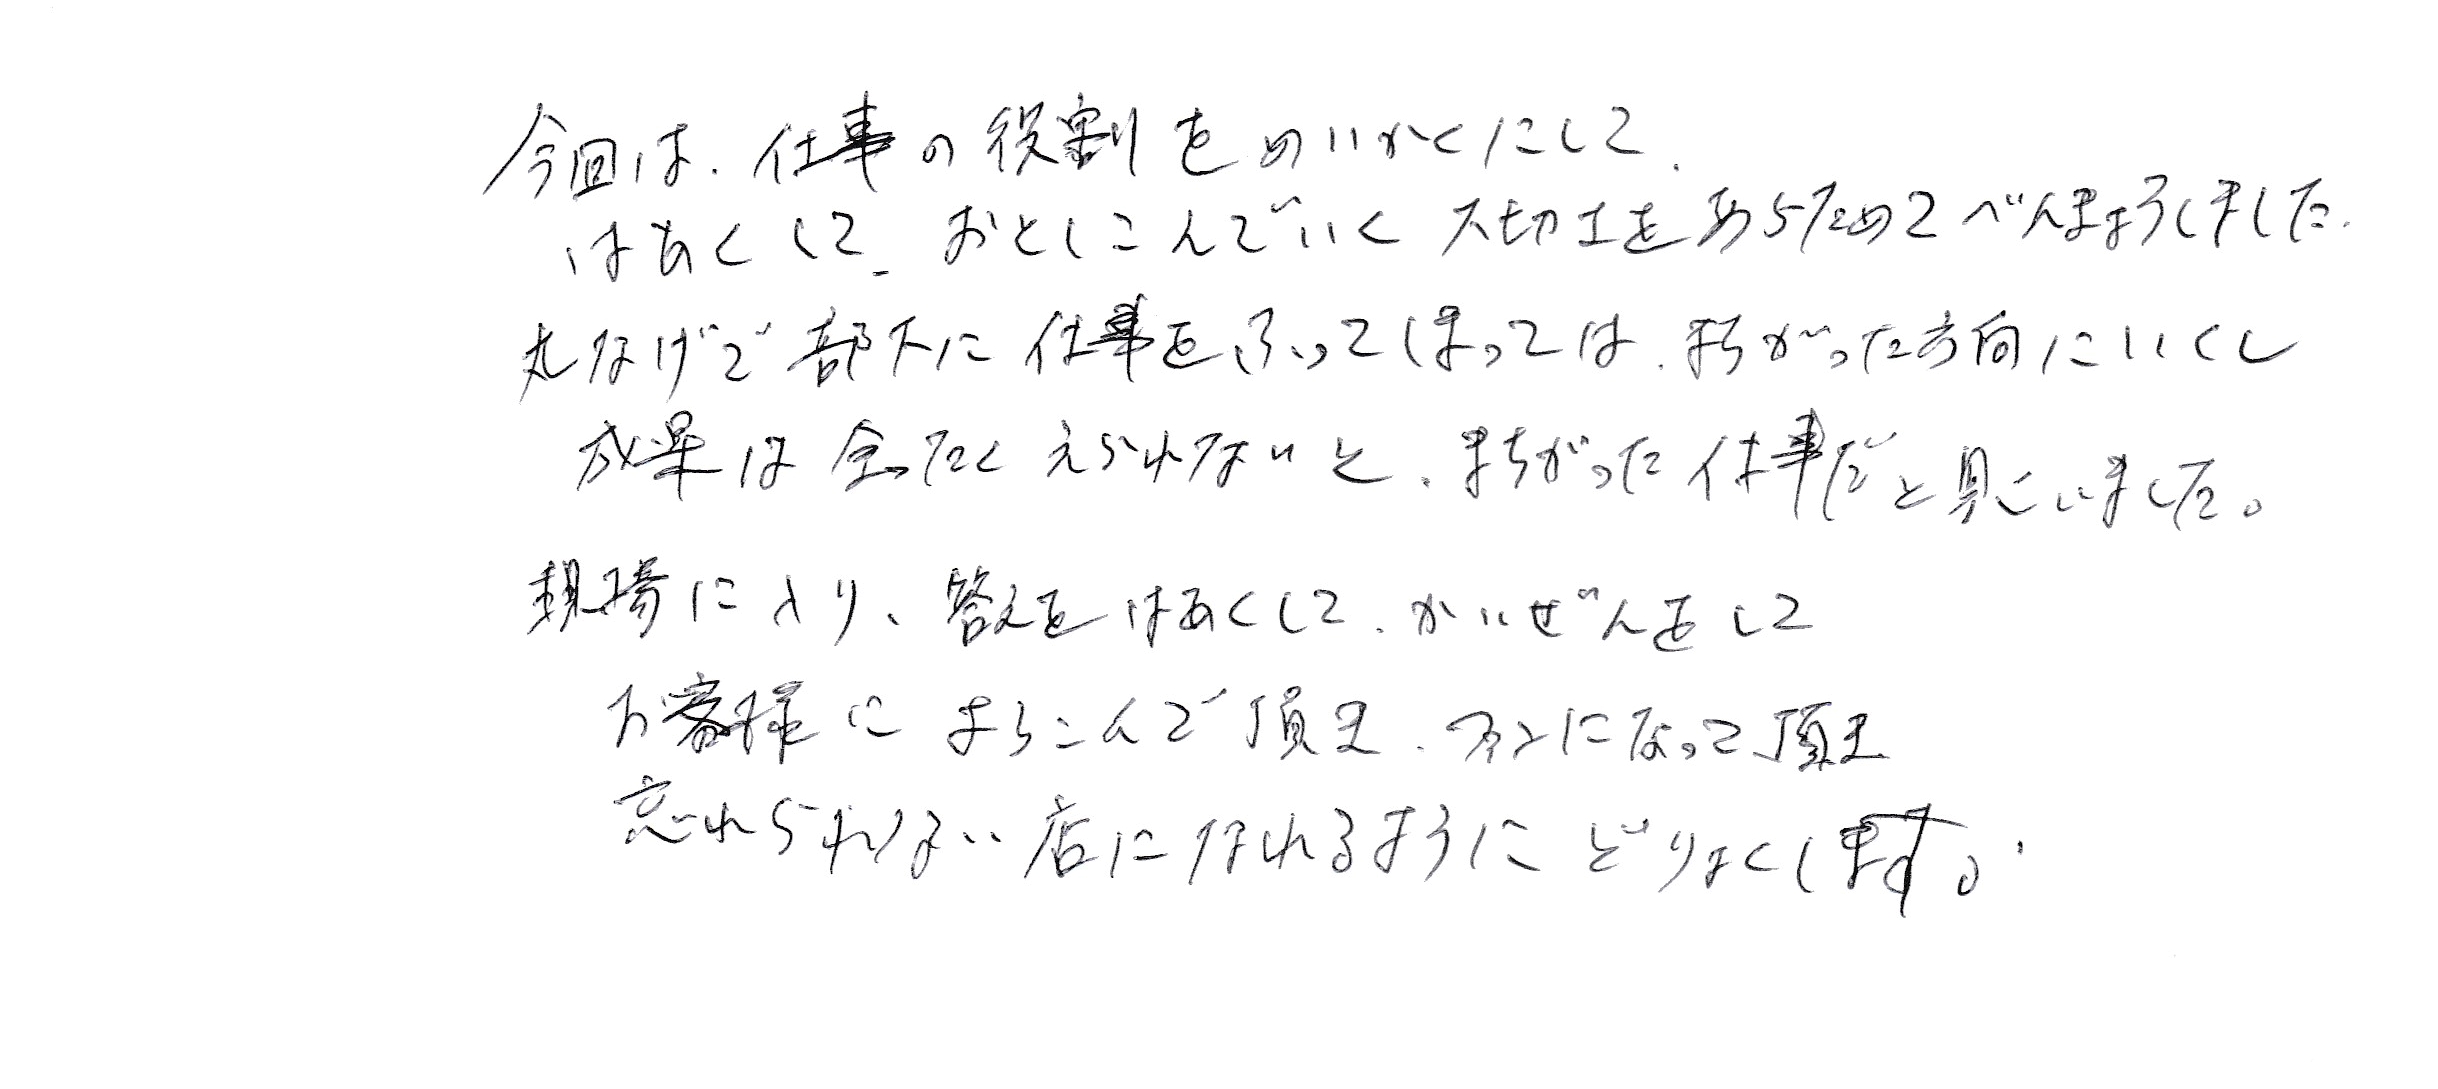 今回は、仕事の役割をめいかくにして、
はあくして、おとしこんでいく大切さをあらためてべんきょうしました。
丸なげで部下に仕事をふってしまっては、まちがった方向にいくし
成果は全ったくえられないと、まちがった仕事だと思いました。
現場に入り、答えをはあくして、かいぜんをして
お客様によろこんで頂き、ファンになって頂き
忘れられない店になれるようにどりょくします。